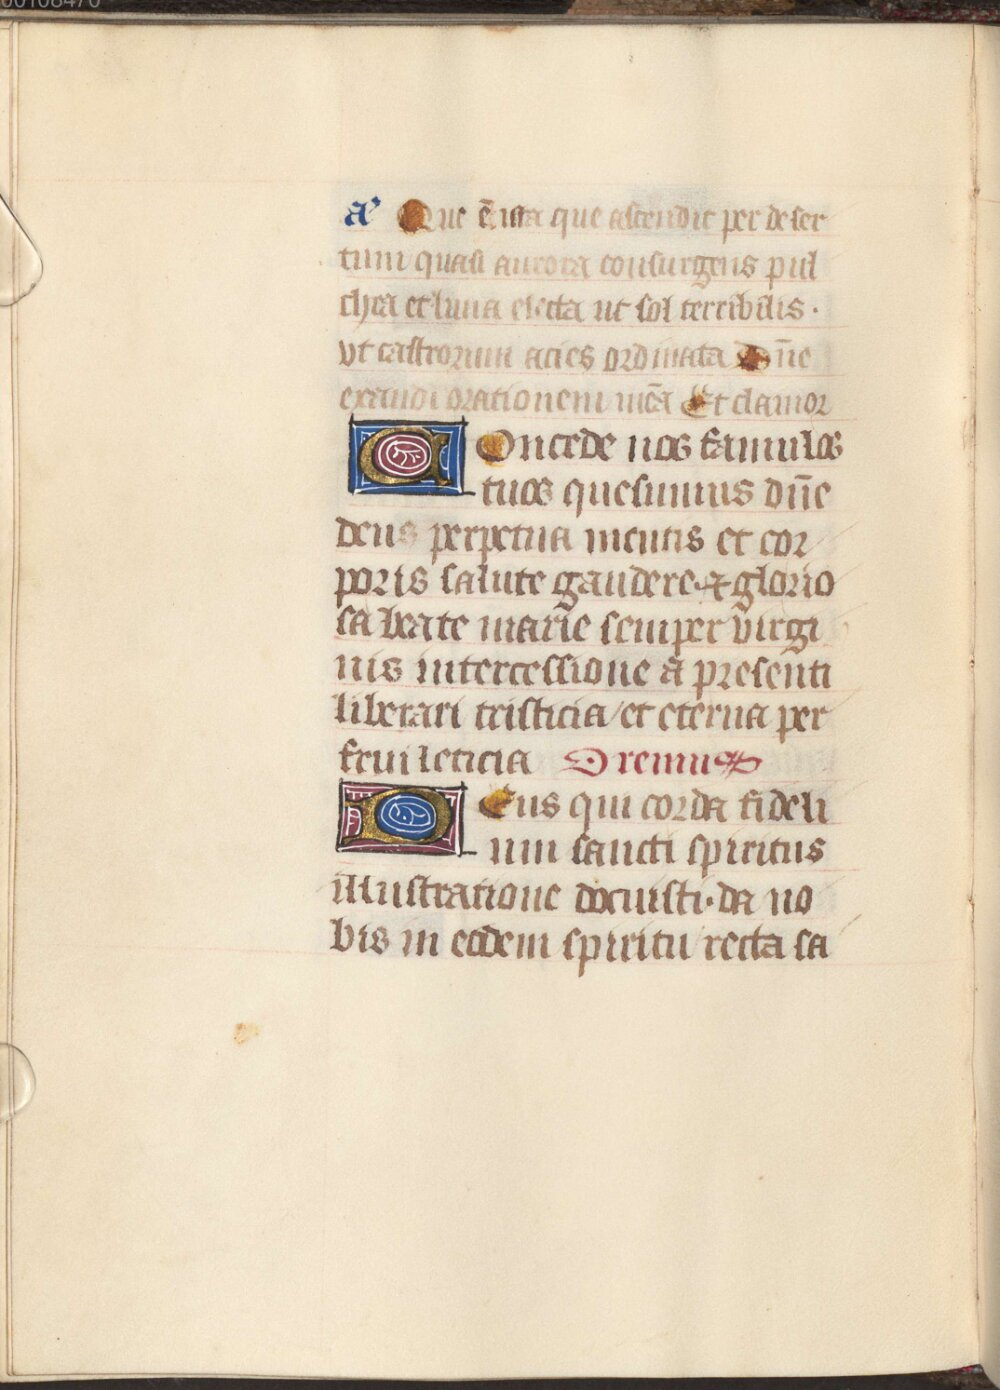 00108470
aͤ Que ē ista que ascendit per deser
tum quasi aurora consurgens pul
chra et luna electa ut sol terribilis ·
vt castrorum acies ordinata Dn̄e
exaudi orationem meā Et clamor
C Oncede nos famulos
tuos quesumus dn̄e
deus perpetua mentis et cor
poris salute gaudere · & glorio
sa beate marie semper virgi
nis intercessione a presenti
liberari tristicia / et eterna per
frui leticia Oremus
D Eus qui corda fideli
um sancti spiritus
illustratione docuisti · da no
bis in eodem spiritu recta sa